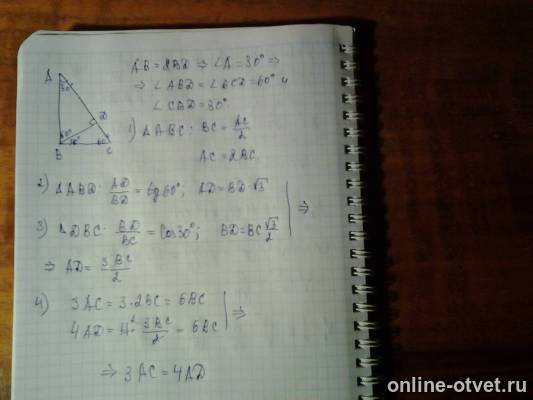 A
30°
D
60° 30° 60°
B C
AB = 2BD ⇒ ∠A = 30° ⇒
⇒ ∠ABD = ∠BCD = 60° и
∠CBD = 30°
1) △ABC: BC = AC/2
AC = 2BC
2) △ABD: AD/BD = tg 60°; AD = BD·√3
3) △DBC: BD/BC = Cos 30°; BD = BC √3/2 | ⇒
⇒ AD = 3BC/2
4) 3AC = 3·2BC = 6BC
4AD = 4·3BC/2 = 6BC | ⇒
⇒ 3AC = 4AD
online-otvet.ru